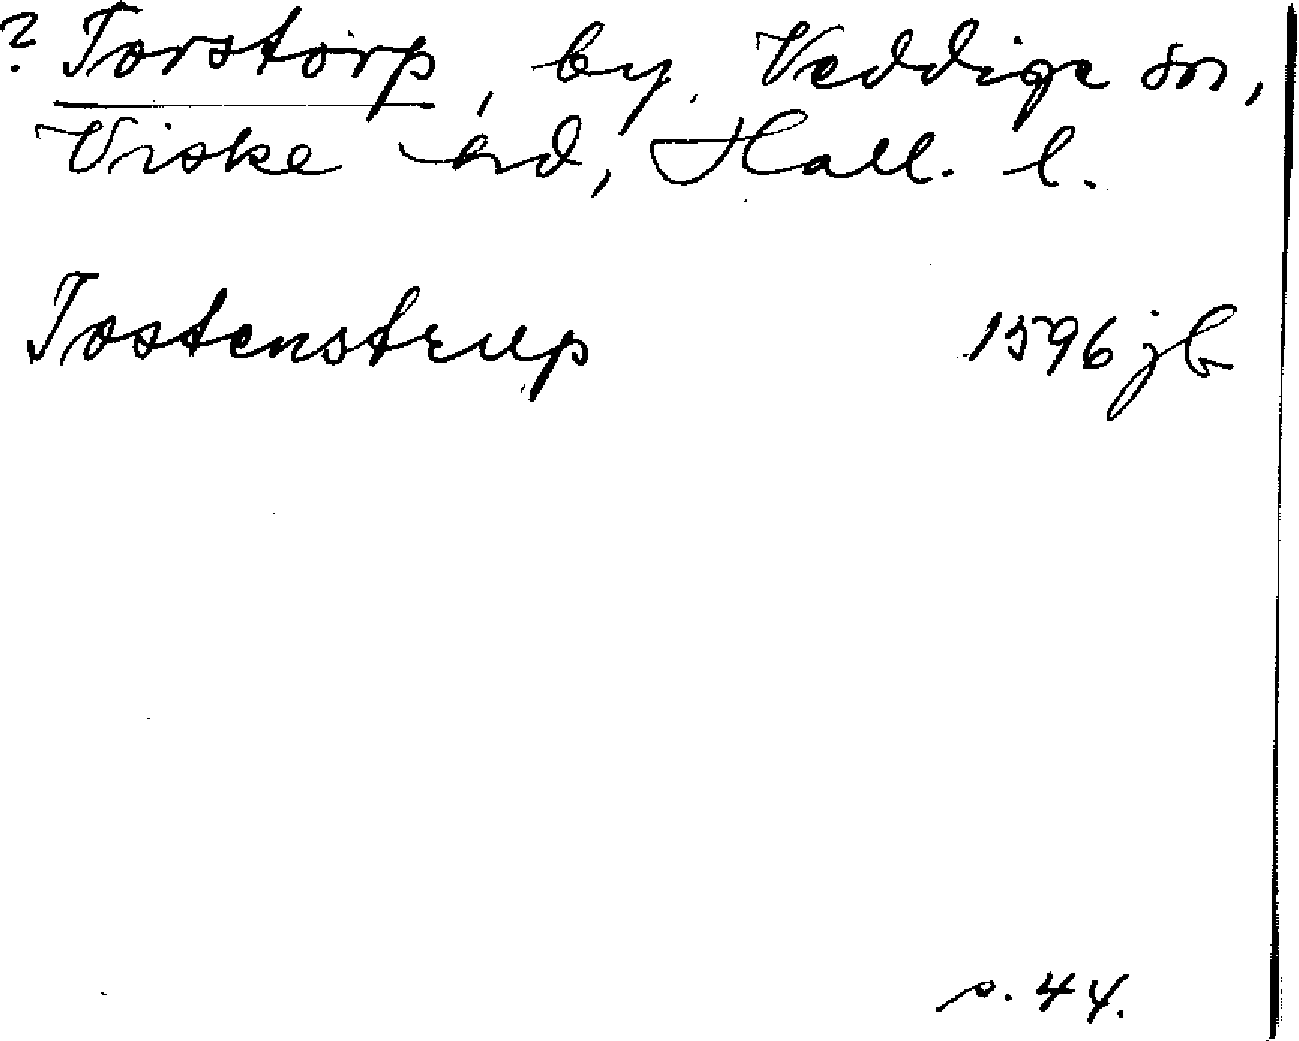 ? Torstorp, by, Veddige sn,
Viske hd, Hall. l.
Tostenstrup 1596 jb
s. 44.